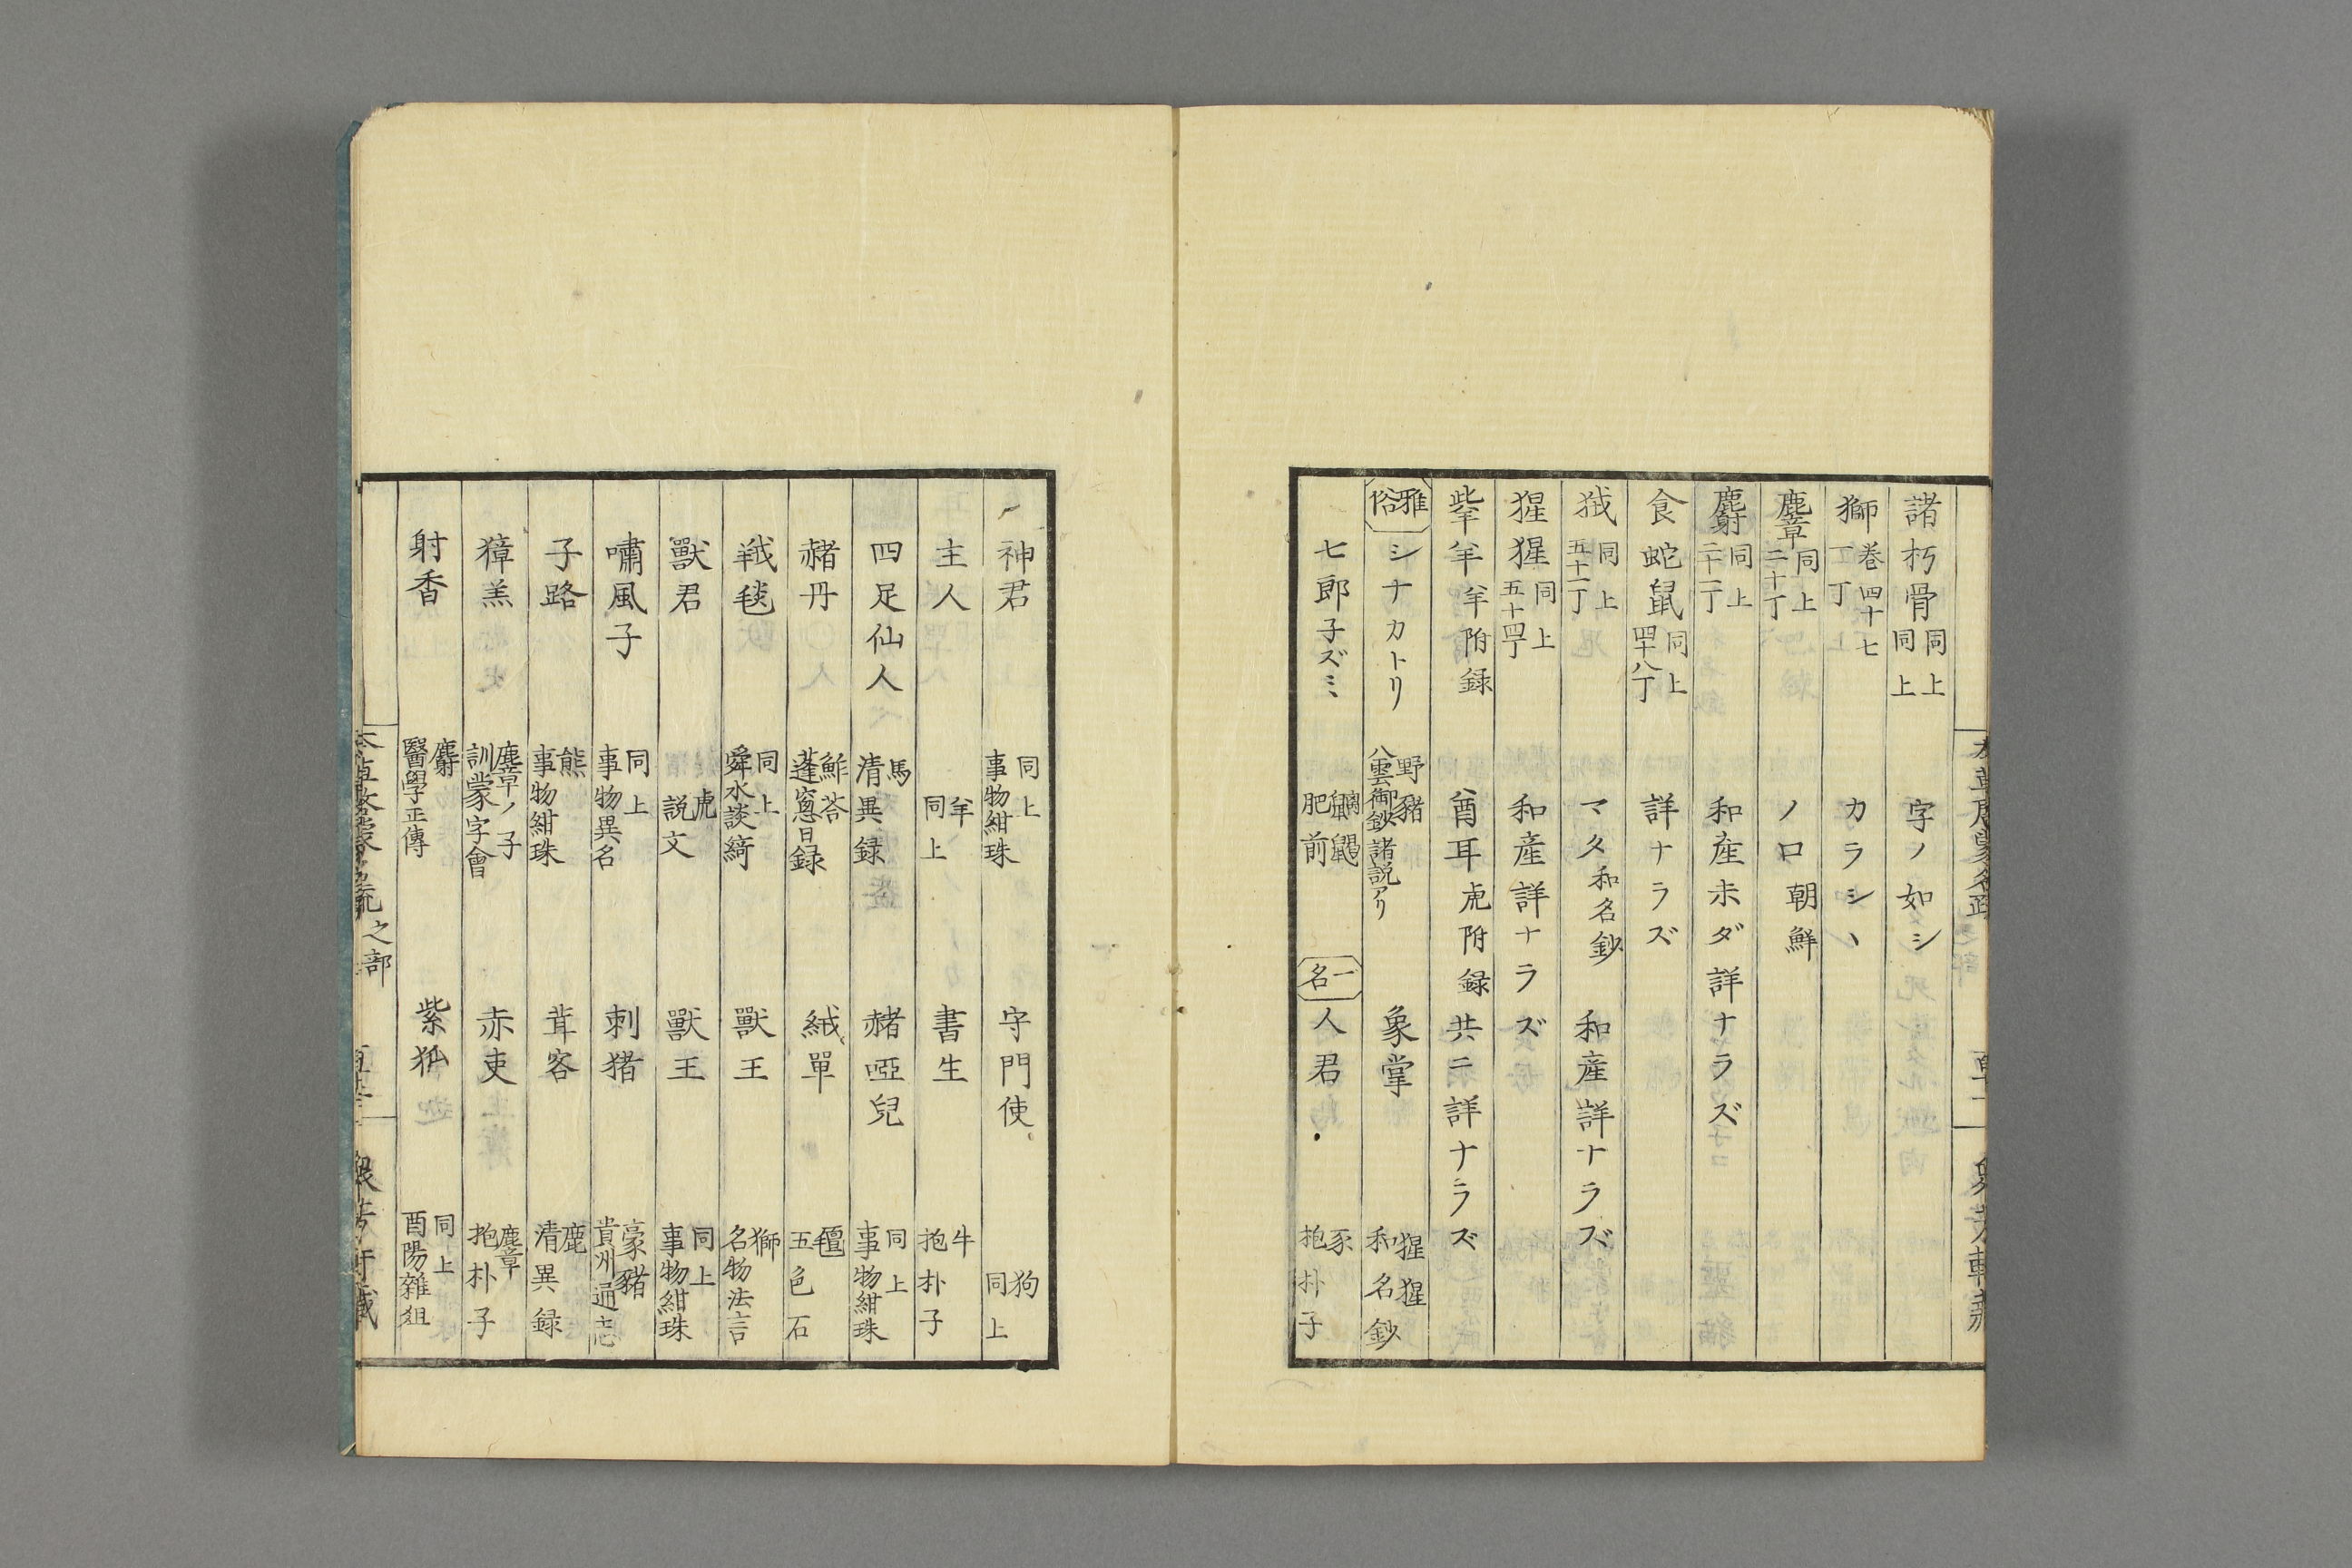 諸朽骨 同上 同上 字ノ如シ
獅 巻四十七 丁 カラシヽ
麞 同上 二十丁 ノロ 朝鮮
麝 同上 二十二丁 和産未ダ詳ナラズ
食蛇鼠 同上 四十八丁 詳ナラズ
狨 同上 五十二丁 マタ 和名鈔 和産詳ナラズ
猩猩 同上 五十四丁 和産詳ナラズ
羊附録 酋耳 虎附録 共ニ詳ナラズ
雅俗 シナカトリ 野豬 八雲御鈔諸説アリ 象掌 猩猩 和名鈔
七郎子ズミ 肥前 一名 人君 豕 抱朴子
神君 同上 事物紺珠 守門使 狗 同上
主人 羊 同上 書生 牛 抱朴子
四足仙人 馬 清異録 赭啞兒 同上 事物紺珠
赭丹 鮓荅 蓬窻日録 絨單 氊 五色石
羢毯 同上 舜水談綺 獸王 獅 名物法言
獸君 虎 説文 獸王 同上 事物紺珠
嘯風子 同上 事物異名 刺猪 豪豬 貴州通志
子路 熊 事物紺珠 茸客 鹿 清異録
獐羔 麞ノ子 訓蒙字會 赤吏 麞 抱朴子
射香 麝 醫學正傳 紫狐 同上 酉陽雜俎
之部